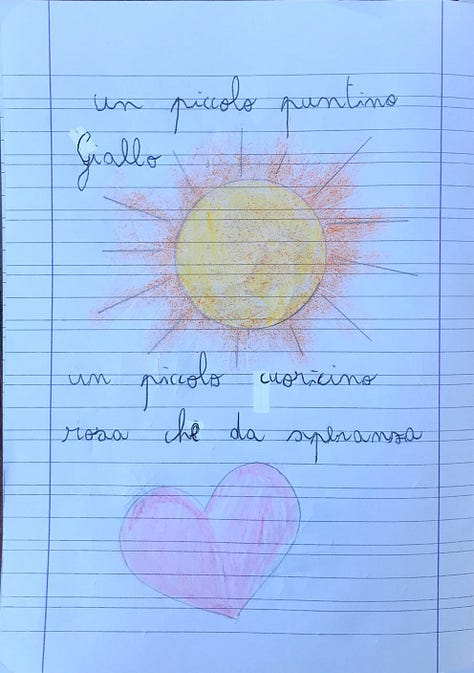 un piccolo puntino
Giallo
un piccolo cuoricino
rosa che da speranza